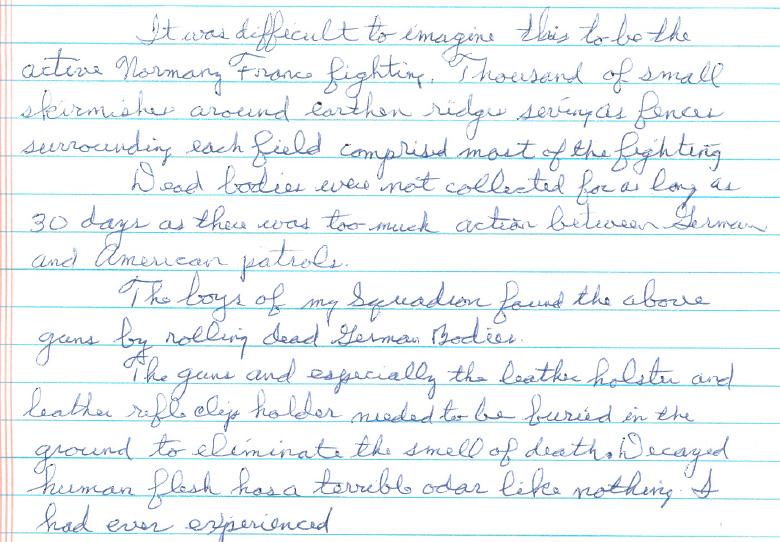 It was difficult to imagine this to be the
active Normany France fighting. Thousand of small
skirmishes around earthen ridges serving as fences
surrounding each field comprised most of the fighting
Dead bodies were not collected for as long as
30 days as there was too much action between German
and American patrols.
The boys of my Squadron found the above
guns by rolling dead German Bodies.
The guns and especially the leather holster and
leather rifle clip holder needed to be buried in the
ground to eliminate the smell of death. Decayed
human flesh has a terrible odar like nothing I
had ever experienced